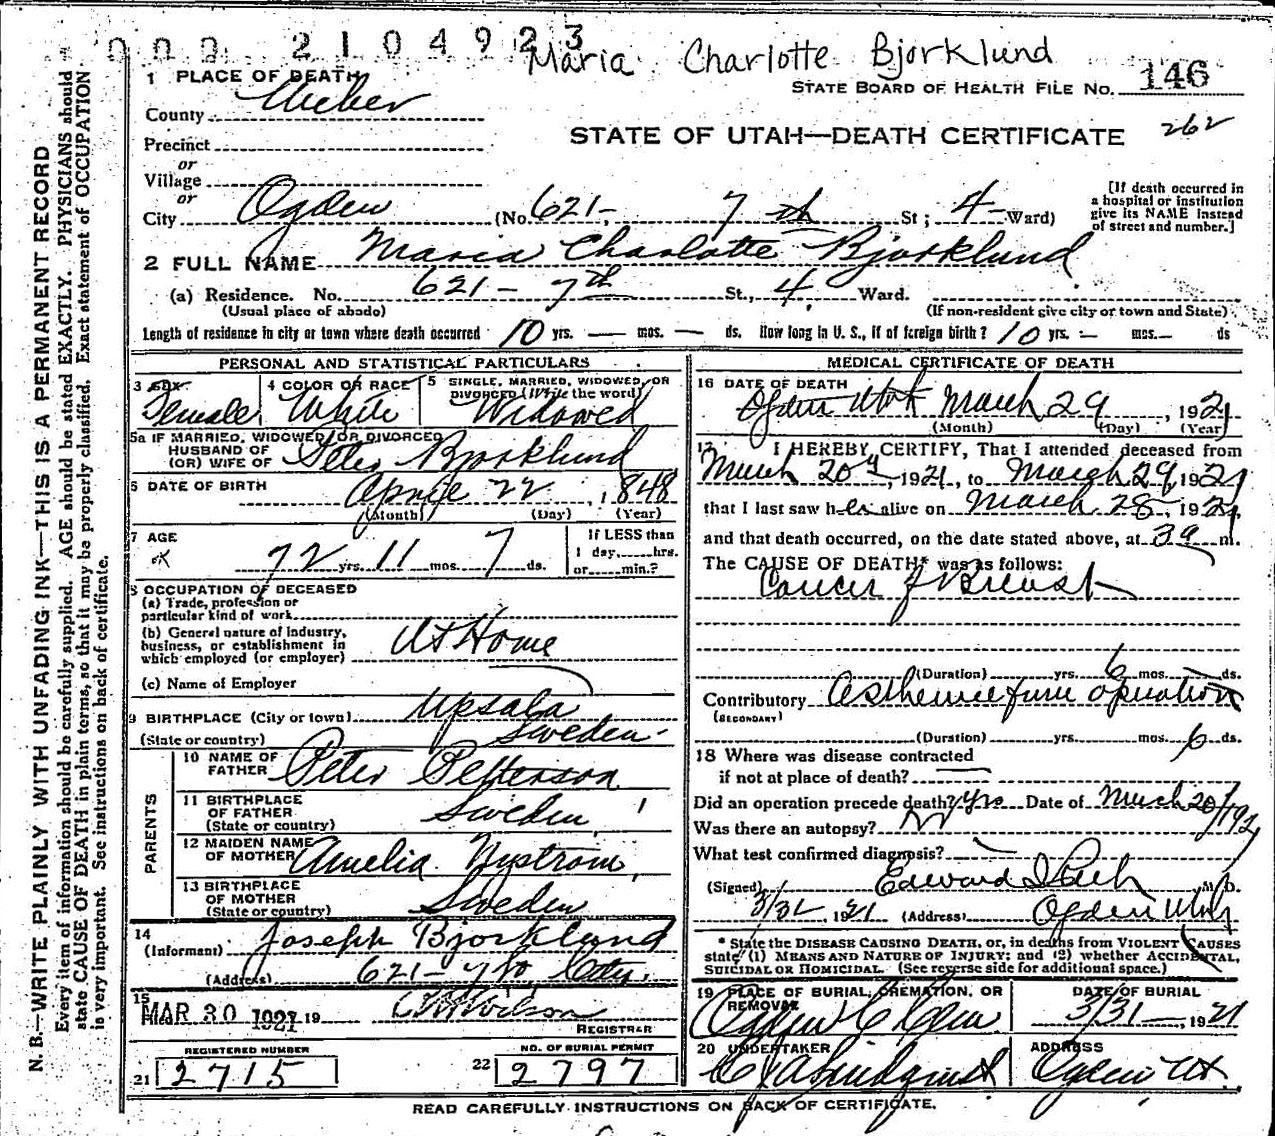 000 2104923
Maria Charlotte Bjorklund
1 PLACE OF DEATH
STATE BOARD OF HEALTH FILE NO. 146
County Weber
STATE OF UTAH—DEATH CERTIFICATE 262
Precinct
or
Village
or
City Ogden (No. 621- 7th St; 4- Ward)
[If death occurred in
a hospital or institution
give its NAME instead
of street and number.]
2 FULL NAME Maria Charlotte Bjorklund
(a) Residence. No. 621- 7th St., 4. Ward.
(Usual place of abode) (If non-resident give city or town and State)
Length of residence in city or town where death occurred 10 yrs. — mos. — ds. How long in U. S., if of foreign birth? 10 yrs. - mos. — ds
PERSONAL AND STATISTICAL PARTICULARS
3 SEX Female
4 COLOR OR RACE White
5 SINGLE, MARRIED, WIDOWED, OR
DIVORCED (Write the word)
Widowed
5a IF MARRIED, WIDOWED, OR DIVORCED
HUSBAND OF
(OR) WIFE OF Peter Bjorklund
6 DATE OF BIRTH April 22, 1848
(Month) (Day) (Year)
7 AGE
ok 72 yrs. 11 mos. 7 ds.
If LESS than
1 day, hrs.
or min.?
8 OCCUPATION OF DECEASED
(a) Trade, profession or
particular kind of work
(b) General nature of industry,
business, or establishment in
which employed (or employer) At Home
(c) Name of Employer
9 BIRTHPLACE (City or town) Upsala
(State or country) Sweden-
PARENTS
10 NAME OF
FATHER Peter Petterson
11 BIRTHPLACE
OF FATHER
(State or country) Sweden
12 MAIDEN NAME
OF MOTHER Amelia Nystrom,
13 BIRTHPLACE
OF MOTHER
(State or country) Sweden
14
(Informant) Joseph Bjorklund
(Address) 621- 7th City.
15
MAR 30 1921 19 Wilson
REGISTRAR
REGISTERED NUMBER
21 2715
NO. OF BURIAL PERMIT
22 2797
MEDICAL CERTIFICATE OF DEATH
16 DATE OF DEATH
Ogden Utah March 29, 1921
(Month) (Day) (Year)
17 I HEREBY CERTIFY, That I attended deceased from
March 20, 1921, to March 29, 1921
that I last saw her alive on March 28, 1921,
and that death occurred, on the date stated above, at 3 a m.
The CAUSE OF DEATH* was as follows:
Cancer of Breast
(Duration) yrs. 6 mos. ds.
Contributory operation
(SECONDARY)
(Duration) yrs. mos. 6 ds.
18 Where was disease contracted
if not at place of death? —
Did an operation precede death? yes Date of March 20/1921
Was there an autopsy? No
What test confirmed diagnosis? —
(Signed) Edward I Rich M. D.
3/31, 1921 (Address) Ogden Utah
* State the DISEASE CAUSING DEATH, or, in deaths from VIOLENT CAUSES
state (1) MEANS AND NATURE OF INJURY; and (2) whether ACCIDENTAL,
SUICIDAL OR HOMICIDAL. (See reverse side for additional space.)
19 PLACE OF BURIAL, CREMATION, OR
REMOVAL
Ogden C Cem
DATE OF BURIAL
3/31, 1921
20 UNDERTAKER
Lindquist
ADDRESS
Ogden Ut.
READ CAREFULLY INSTRUCTIONS ON BACK OF CERTIFICATE.
N. B.—WRITE PLAINLY WITH UNFADING INK—THIS IS A PERMANENT RECORD
Every item of information should be carefully supplied. AGE should be stated EXACTLY. PHYSICIANS should
state CAUSE OF DEATH in plain terms, so that it may be properly classified. Exact statement of OCCUPATION
is very important. See instructions on back of certificate.